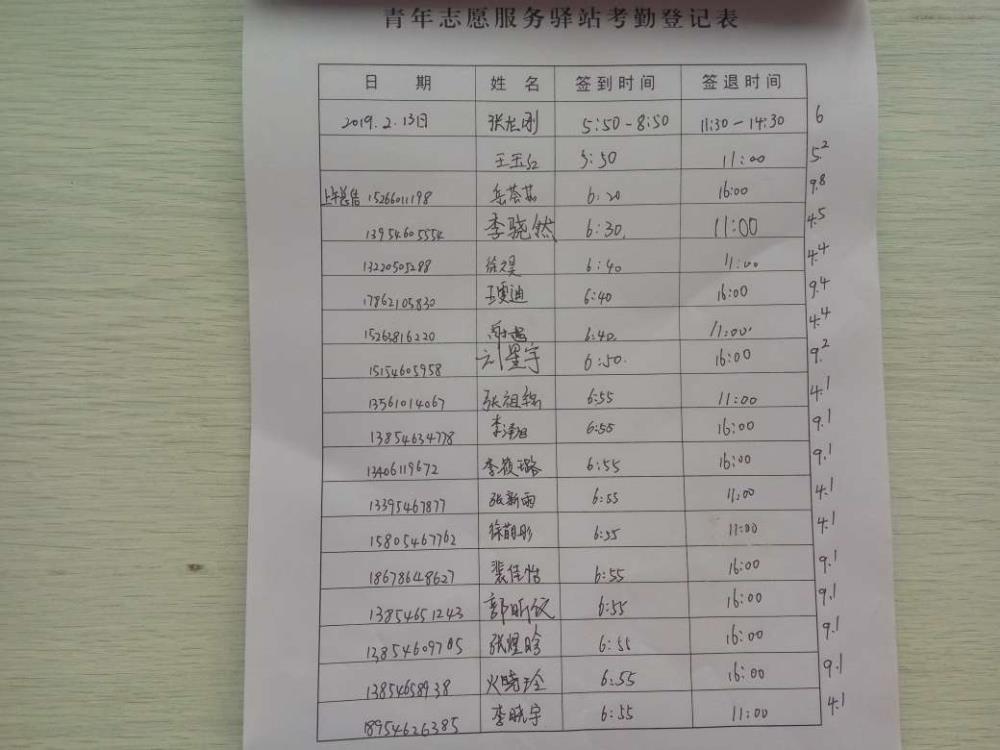 青年志愿服务驿站考勤登记表
日 期 姓 名 签到时间 签退时间
2019.2.13日 张龙刚 5:50-8:50 11:30-14:30 6
王玉红 5:50 11:00 5.2
15266011198 岳荟茹 6:20 16:00 9.8
13954605554 李骁然 6:30. 11:00 4.5
13220505288 徐久昊 6:40 11:00 4.4
17862105830 王雯迪 6:40 16:00 9.4
15263816220 6:40. 11:00. 4.4
15154605958 刘星宇 6:50. 16:00 9.2
13561014067 张祖 6:55 11:00 4.1
13854634778 李泽旭 6:55 16:00 9.1
13406119672 李筱璐 6:55 16:00 9.1
13395467877 张新雨 6:55 11:00 4.1
15805467762 徐萌彤 6:55 11:00 4.1
18678648627 裴佳怡 6:55 16:00 9.1
13854651243 郭昕仪 6:55 16:00 9.1
13854609705 张煜晗 6:55 16:00 9.1
13854658938 火晓玲 6:55 16:00 9.1
18954626385 李晓宇 6:55 11:00 4.1